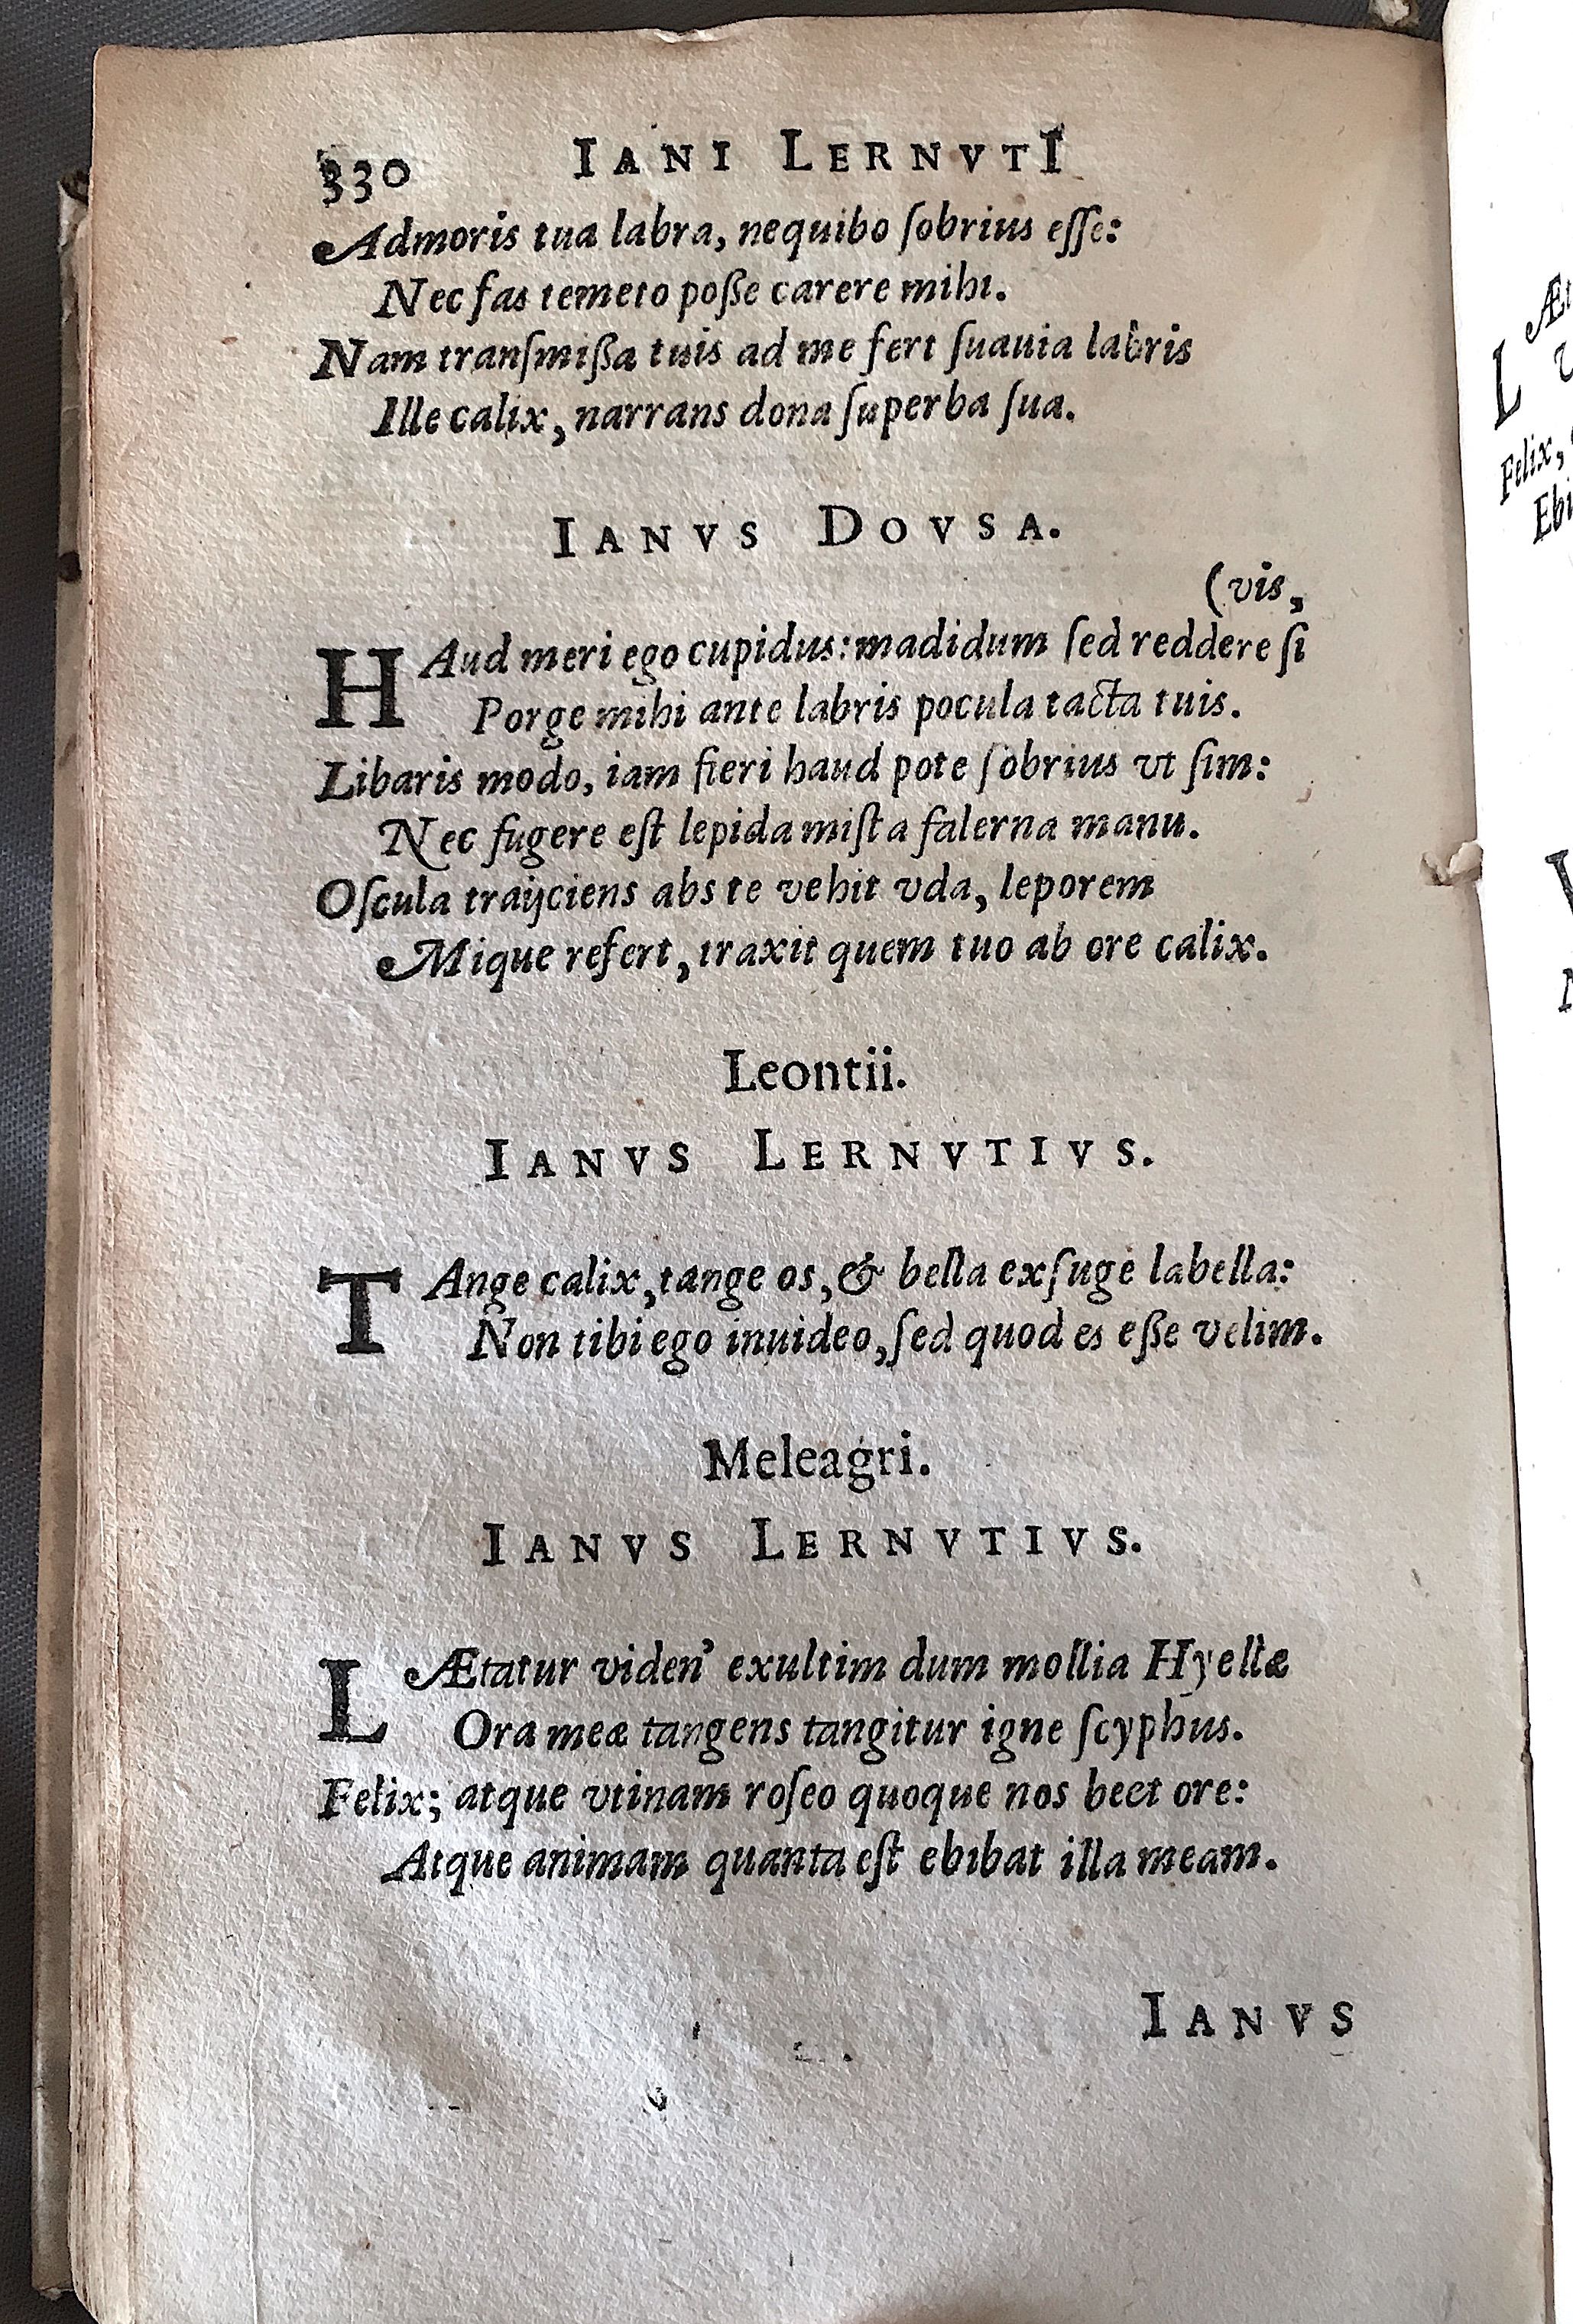 330 IANI LERNVTI
Admoris tua labra, nequibo ſobrius eſſe:
Nec fas temeto poße carere mihi.
Nam tranſmißa tuis ad me fert ſuauia labris
Ille calix, narrans dona ſuperba ſua.
IANVS DOVSA.
(vis,
HAud meri ego cupidus: madidum ſed reddere ſi
Porge mihi ante labris pocula tacta tuis.
Libaris modo, iam fieri haud pote ſobrius vt ſim:
Nec fugere eſt lepida miſta falerna manu.
Oſcula traijciens abs te vehit vda, leporem
Mique refert, traxit quem tuo ab ore calix.
Leontii.
IANVS LERNVTIVS.
TAnge calix, tange os, & bella exſuge labella:
Non tibi ego inuideo, ſed quod es eße velim.
Meleagri.
IANVS LERNVTIVS.
LÆtatur viden' exultim dum mollia Hyellæ
Ora meæ tangens tangitur igne ſcyphus.
Felix; atque vtinam roſeo quoque nos beet ore:
Atque animam quanta eſt ebibat illa meam.
IANVS
Felix,